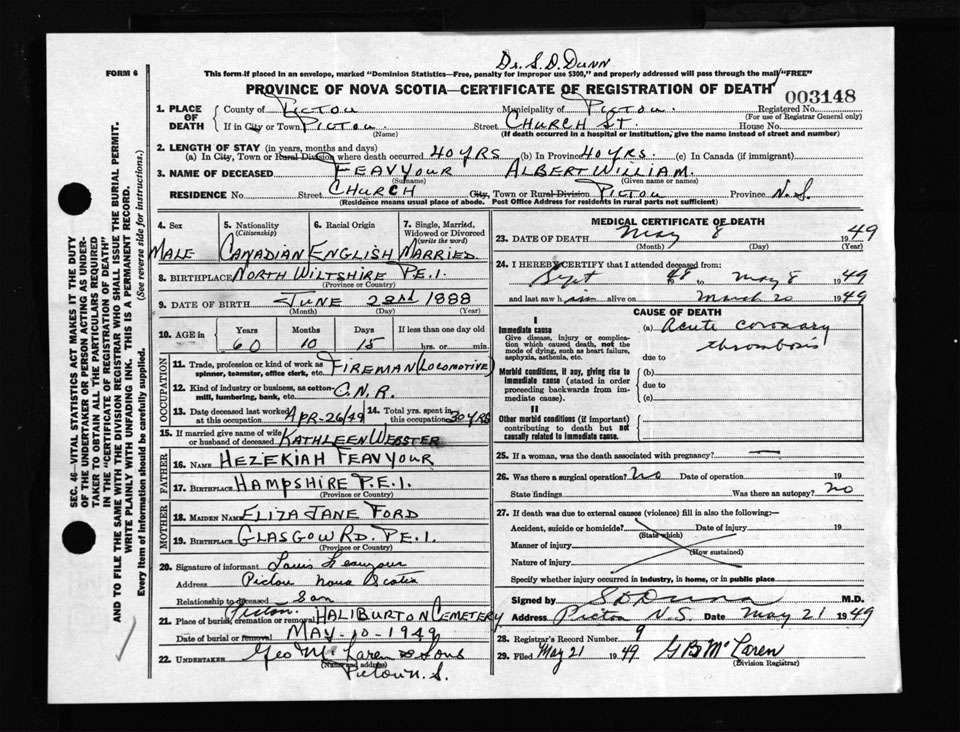 Dr. S. D. Dunn
FORM 6
This form if placed in an envelope, marked "Dominion Statistics—Free, penalty for improper use $300," and properly addressed will pass through the mail "FREE"
PROVINCE OF NOVA SCOTIA—CERTIFICATE OF REGISTRATION OF DEATH
003148
1. PLACE OF DEATH
County of PICTOU Municipality of PICTOU. Registered No.
(For use of Registrar General only)
If in City or Town PICTOU Street CHURCH ST. House No.
(Name) (If death occurred in a hospital or institution, give the name instead of street and number)
2. LENGTH OF STAY (in years, months and days)
(a) In City, Town or Rural Division where death occurred 40 YRS (b) In Province 40 YRS. (c) In Canada (if immigrant)
3. NAME OF DECEASED FEAVYOUR ALBERT WILLIAM.
(Surname) (Given name or names)
RESIDENCE No. Street CHURCH City, Town or Rural Division PICTOU Province N.S.
(Residence means usual place of abode. Post Office Address for residents in rural parts not sufficient)
4. Sex 5. Nationality (Citizenship) 6. Racial Origin 7. Single, Married, Widowed or Divorced (write the word)
MALE CANADIAN ENGLISH MARRIED.
8. BIRTHPLACE NORTH WILTSHIRE P.E.I.
(Province or Country)
9. DATE OF BIRTH JUNE 23rd 1888
(Month) (Day) (Year)
10. AGE in Years Months Days If less than one day old
60 10 15 hrs. or min.
OCCUPATION
11. Trade, profession or kind of work as spinner, teamster, office clerk, etc. FIREMAN (LOCOMOTIVE)
12. Kind of industry or business, as cotton-mill, lumbering, bank, etc. C.N.R.
13. Date deceased last worked at this occupation APR-26/49 14. Total yrs. spent in this occupation 30 YRS
15. If married give name of wife or husband of deceased KATHLEEN WEBSTER
FATHER
16. NAME HEZEKIAH FEAVYOUR
17. BIRTHPLACE HAMPSHIRE P.E.I.
(Province or Country)
MOTHER
18. MAIDEN NAME ELIZA JANE FORD
19. BIRTHPLACE GLASGOW RD. P.E.I.
(Province or Country)
20. Signature of informant Louis Feavyour
Address Pictou Nova Scotia
Relationship to deceased Son
21. Place of burial, cremation or removal Pictou. HALIBURTON CEMETERY
Date of burial or removal MAY-10-1949
22. UNDERTAKER Geo McLaren & Sons
(Name and address)
Pictou N.S.
MEDICAL CERTIFICATE OF DEATH
23. DATE OF DEATH May 8 1949
(Month) (Day) (Year)
24. I HEREBY CERTIFY that I attended deceased from:
Sept 48 to May 8 1949
and last saw him alive on March 20 1949
CAUSE OF DEATH
I
Immediate cause (a) Acute coronary
Give disease, injury or complication which caused death, not the mode of dying, such as heart failure, asphyxia, asthenia, etc.
thrombosis
due to
Morbid conditions, if any, giving rise to immediate cause (stated in order proceeding backwards from immediate cause).
(b)
due to
(c)
II
Other morbid conditions (if important) contributing to death but not causally related to immediate cause.
25. If a woman, was the death associated with pregnancy? —
26. Was there a surgical operation? No Date of operation 19
State findings Was there an autopsy? No
27. If death was due to external causes (violence) fill in also the following:—
Accident, suicide or homicide? Date of injury 19
(State which)
Manner of injury
(How sustained)
Nature of injury
Specify whether injury occurred in industry, in home, or in public place
Signed by S D Dunn M.D.
Address Pictou N.S. May 21 1949
28. Registrar's Record Number 9
29. Filed May 21 1949 G B McLaren
(Division Registrar)
SEC. 46—VITAL STATISTICS ACT MAKES IT THE DUTY
OF THE UNDERTAKER OR PERSON ACTING AS UNDER-
TAKER TO OBTAIN ALL THE PARTICULARS REQUIRED
IN THE "CERTIFICATE OF REGISTRATION OF DEATH"
AND TO FILE THE SAME WITH THE DIVISION REGISTRAR WHO SHALL ISSUE THE BURIAL PERMIT.
WRITE PLAINLY WITH UNFADING INK. THIS IS A PERMANENT RECORD.
Every item of Information should be carefully supplied. (See reverse side for instructions.)